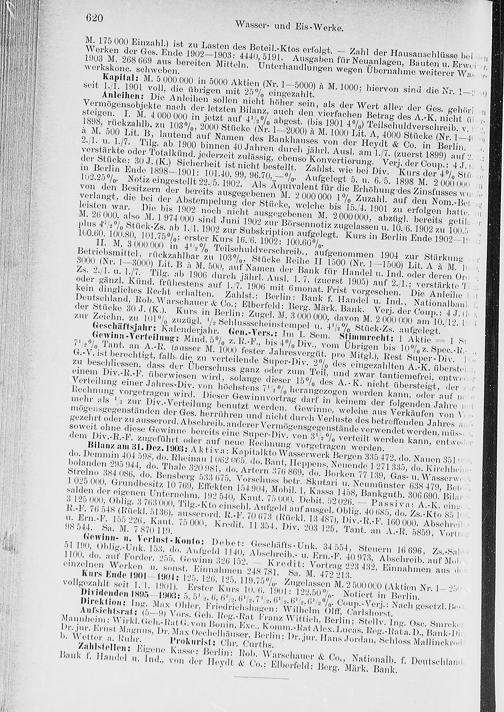 620
Wasser- und Eis-Werke.
M. 175 000 Einzahl.) ist zu Lasten des Beteil.-Ktos erfolgt. — Zahl der Hausanschlüsse bei
Werken der Ges. Ende 1902—1903: 4440, 5191. Ausgaben für Neuanlagen, Bauten u.
1903 M. 268 669 aus bereiten Mitteln. Unterhandlungen wegen Übernahme weiterer
werkskonz. schweben.
Kapital: M. 5 000 000 in 5000 Aktien (Nr. 1—5000) à M. 1000; hiervon sind die Nr. 1
seit 1./1. 1901 voll, die übrigen mit 25% eingezahlt.
Anleihen: Die Anleihen sollen nicht höher sein, als der Wert aller der Ges.
Vermögensobjekte nach der letzten Bilanz, auch den vierfachen Betrag des A.-K. nicht
steigen. I. M. 4 000 000 in jetzt auf 4½% abgest. (bis 1901 4%) Teilschuldverschreib. v.
1898, rückzahlb. zu 103%, 2000 Stücke (Nr. 1—2000) à M. 1000 Lit. A, 4000 Stücke
à M. 500 Lit. B, lautend auf Namen des Bankhauses von der Heydt & Co. in Berlin.
2./1. u. 1./7. Tilg. ab 1900 binnen 40 Jahren durch jährl. Ausl. am 1./7. (zuerst 1899) auf
verstärkte oder Totalkünd. jederzeit zulässig, ebenso Konvertierung. Verj. der Coup.: 4 J.
der Stücke: 30 J. (K.) Sicherheit ist nicht bestellt. Zahlst. wie bei Div. Kurs der 4%
in Berlin Ende 1898—1901: 101.40, 99, 96.70, —%. Aufgelegt 5. u. 6./5. 1898 M. 2 000 000
102.25%. Notiz eingestellt 22./5. 1902. Als Äquivalent für die Erhöhung des Zinsfusses
von den Besitzern der bereits ausgegebenen M. 2 000 000 1% Zuzahl. auf den Nom.-
verlangt, die bei der Abstempelung der Stücke, welche bis 15./4. 1901 zu erfolgen
leisten war. Die bis 1902 noch nicht ausgegebenen M. 2 000 000, abzügl. bereits
M. 26 000, also M. 1 974 000 sind Juni 1902 zur Börsennotiz zugelassen u. 10./6. 1902 zu
plus 4½% Stück-Zs. ab 1./1. 1902 zur Subskription aufgelegt. Kurs in Berlin Ende 1902
100.60, 100.80, 101.75%; erster Kurs 16./6. 1902: 100.60%.
II. M. 3 000 000 in 4½% Teilschuldverschreib., aufgenommen 1904 zur Stärkung
Betriebsmittel, rückzahlbar zu 103%, Stücke Reihe II 1500 (Nr. 1—1500) Lit. A à M.
3000 (Nr. 1—3000) Lit. B à M. 500, auf Namen der Bank für Handel u. Ind. oder deren
Zs. 2./1. u. 1./7. Tilg. ab 1906 durch jährl. Ausl. 1./7. (zuerst 1905) auf 2./1.; verstärkte
oder gänzl. Künd. frühestens auf 1./7. 1906 mit 6 monat. Frist vorgesehen. Die Anleihe
kein dingliches Recht erhalten. Zahlst.: Berlin: Bank f. Handel u. Ind., Nationalbank
Deutschland, Rob. Warschauer & Co.; Elberfeld: Berg. Märk. Bank. Verj. der Coup.: 4 J.
der Stücke 30 J. (K.) Kurs in Berlin: Zugel. M. 3 000 000, davon M. 2 000 000 am 10./12.
zur Zeichn. zu 101% zuzügl. ½ Schlussscheinstempel u. 4½% Stück-Zs. aufgelegt.
Geschäftsjahr: Kalenderjahr. Gen.-Vers.: Im I. Sem. Stimmrecht: 1 Aktie = 1
Gewinn-Verteilung: Mind. 5% z. R.-F., bis 4% Div., vom Übrigen bis 10% z. Spec.-R.
7½% Tant. an A.-R. (ausser M. 1000 fester Jahresvergüt. pro Mitgl.), Rest Super-Div.
G.-V. ist berechtigt, falls die zu verteilende Super-Div. 2% des eingezahlten A.-K.
zu beschliessen, dass der Überschuss ganz oder zum Teil, und zwar tantiemefrei,
einem Div.-R.-F. überwiesen wird, solange dieser 15% des A.-K. nicht übersteigt,
Verteilung einer Jahres-Div. von höchstens 7½% herangezogen werden kann, oder auf
Rechnung vorgetragen wird. Dieser Gewinnvortrag darf in keinem der folgenden Jahre
mehr als ½ zur Div.-Verteilung benutzt werden. Gewinne, welche aus Verkäufen von
mögensgegenständen der Ges. herrühren und nicht durch Verluste des betreffenden Jahres
gezehrt oder zu ausserord. Abschreib. anderer Vermögensgegenstände verwendet werden,
soweit ohne diese Gewinne bereits eine Super-Div. von 3½% verteilt werden kann,
dem Div.-R.-F. zugeführt oder auf neue Rechnung vorgetragen werden.
Bilanz am 31. Dez. 1903: Aktiva: Kapitalkto Wasserwerk Bergen 335 472, do. Nauen
do. Demmin 404 598, do. Rheinau 1 062 065, do. Bant, Heppens, Neuende 1 271 335, do.
bolanden 295 944, do. Thale 320 981, do. Artern 376 869, do. Borken 77 139, Gas- u.
Strelno 384 086, do. Bensberg 553 675, Vorschuss betr. Skutari u. Neumünster 638 479,
1 025 000, Grundbesitz 10 769, Effekten 154 904, Mobil. 1, Kassa 1458, Bankguth. 306 690,
salden der eigenen Unternehm. 192 540, Kaut. 75 000, Debit. 52 026. — Passiva: A.-K.
3 125 000, Oblig. 3 763 000, Tilg.-Kto einschl. Aufgeld auf ausgel. Oblig. 40 685, do. Zs.-Kto
R.-F. 76 548 (Rückl. 5136), ausserord. R.-F. 70 673 (Rückl. 13 487), Div.-R.-F. 160 000,
u. Ern.-F. 155 226, Kaut. 75 000, Kredit. 11 354, Div. 203 125, Tant. an A.-R. 5859,
98 544. Sa. M. 7 870 119.
Gewinn- u. Verlust-Konto: Debet: Geschäfts-Unk. 34 551, Steuern 16 696,
51 190, Oblig.-Unk. 153, do. Aufgeld 1140, Abschreib.- u. Ern.-F. 40 973, Abschreib. auf
1100, do. auf Forder. 255, Gewinn 326 152. — Kredit: Vortrag 223 432, Einnahmen aus
einzelnen Werken u. sonst. Einnahmen 248 781. Sa. M. 472 213.
Kurs Ende 1901—1904: 125, 126, 125, 119.75%. Zugelassen M. 2 500 000 (Aktien Nr. 1
vollgezahlt seit 1./1. 1901). Erster Kurs 10./6. 1901: 122.50%. Notiert in Berlin.
Dividenden 1895—1903: 5, 5½, 6, 6½, 7½, 6½, 6½, 6½, 6½%. Coup.-Verj.: Nach gesetzl.
Direktion: Ing. Max Ohler, Friedrichshagen; Wilhelm Olff, Carlshorst.
Aufsichtsrat: (5—9) Vors. Geh. Reg.-Rat Franz Wittich, Berlin; Stellv. Ing. Osc.
Mannheim; Wirkl. Geh.-Rat G. von Bonin, Exc., Komm.-Rat Alex. Lucas, Reg.-Rat a. D.,
Dr. jur. Ernst Magnus, Dr. Max Oechelhäuser, Berlin; Dr. jur. Hans Jordan, Schloss Mallinckrodt
b. Wetter a. Ruhr. Prokurist: Chr. Curths.
Zahlstellen: Eigene Kasse; Berlin: Rob. Warschauer & Co., Nationalb. f. Deutschland,
Bank f. Handel u. Ind., von der Heydt & Co.; Elberfeld: Berg. Märk. Bank.